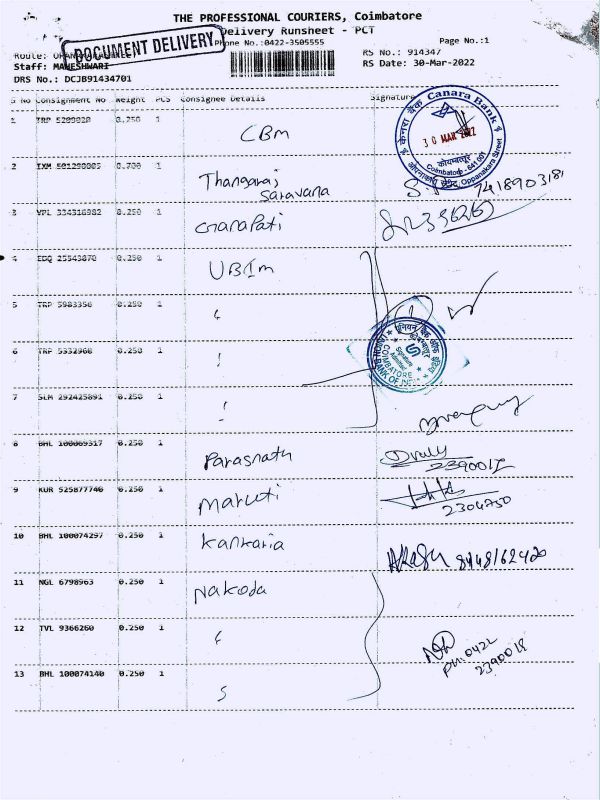 THE PROFESSIONAL COURIERS, Coimbatore
Delivery Runsheet - PCT
Phone No.:0422-3505555
Page No.:1
DOCUMENT DELIVERY
Route:
RS No.: 914347
Staff: MAHESHWARI
RS Date: 30-Mar-2022
DRS No.: DCJB91434701
S No Consignment No Weight PCS Consignee Details Signature
Canara Bank
केनरा बैंक
30 MAR 2022
कोयम्बत्तूर
Coimbatore - 641 001
Oppanakara Street
1 TRP 5209020 0.250 1 CBM
2 IXM 501290005 0.700 1 Thangaraj
Saravana
7418903181
3 VPL 334316982 0.250 1 Ganapati
4 EDQ 25543870 0.250 1 UBIM
5 TRP 5983356 0.250 1 "
6 TRP 5332968 0.250 1 "
UNION BANK OF INDIA
COIMBATORE
Signature
7 SLM 292425891 0.250 1 "
8 BHL 100069317 0.250 1 Parasnath
2390012
9 KUR 525877746 0.250 1 Maruti
2304750
10 BHL 100074297 0.250 1 Kankaria
Akash 8448162420
11 NGL 6798963 0.250 1 Nakoda
12 TVL 9366260 0.250 1 "
PH 0422
2390018
13 BHL 100074140 0.250 1 "